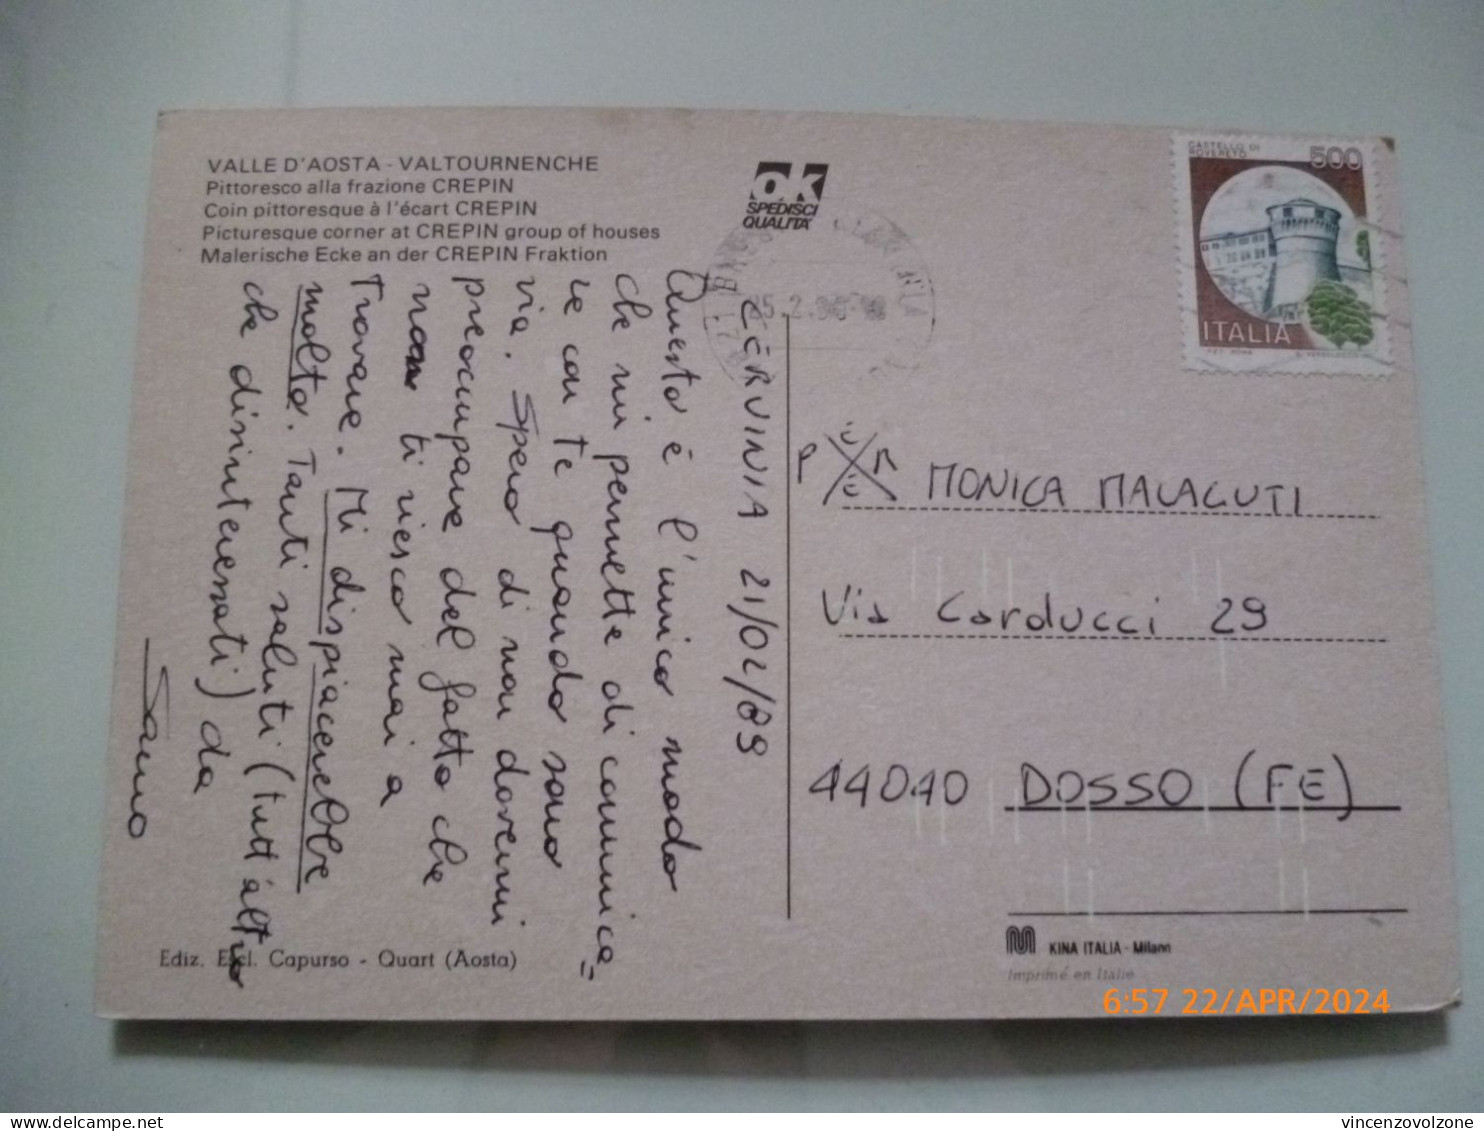 VALLE D'AOSTA - VALTOURNENCHE
Pittoresco alla frazione CREPIN
Coin pittoresque à l'écart CREPIN
Picturesque corner at CREPIN group of houses
Malerische Ecke an der CREPIN Fraktion
OK
SPEDISCI
QUALITÀ
CASTELLO DI
ROVERETO
500
ITALIA
CERVINIA 21/02/89
Questo è l'unico modo
che mi permette di comunica=
re con te quando sono
via. Spero di non dovermi
preoccupare del fatto che
non ti riesco mai a
trovare. Mi dispiacerebbe
molto. Tanti saluti (tutt'altro
che disinteressati) da
P E R MONICA MALAGUTI
Via Carducci 29
44040 DOSSO (FE)
Ediz. Escl. Capurso - Quart (Aosta)
KINA ITALIA - Milano
Imprimé en Italie
6:57 22/APR/2024
vincenzovolzone